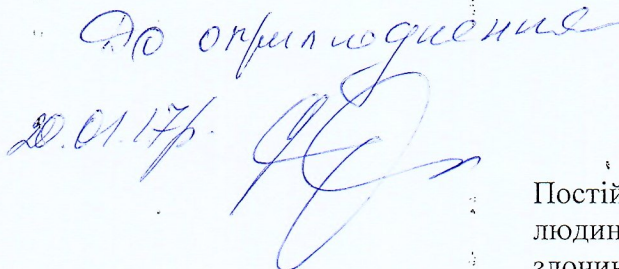 До оприлюднення
20.01.17р.
Постій
людин
злочин